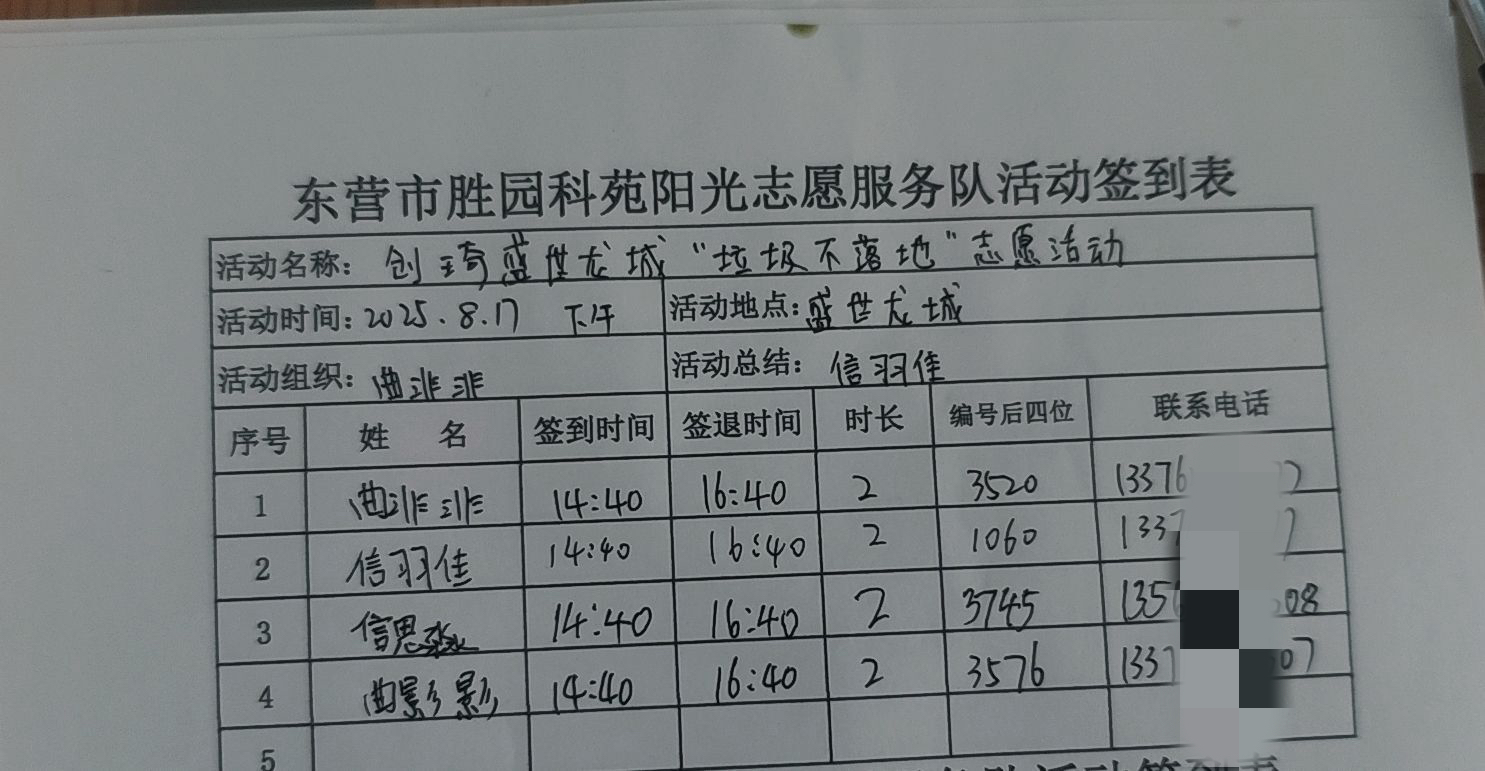 东营市胜园科苑阳光志愿服务队活动签到表
活动名称: 创琦盛世龙城“垃圾不落地”志愿活动
活动时间: 2025.8.17 下午 活动地点: 盛世龙城
活动组织: 曲非非 活动总结: 信羽佳
序号 姓 名 签到时间 签退时间 时长 编号后四位 联系电话
1 曲非非 14:40 16:40 2 3520 13376 2
2 信羽佳 14:40 16:40 2 1060 1337
3 信思 14:40 16:40 2 3745 135 08
4 曲影影 14:40 16:40 2 3576 1337 07
5
队活动签到表